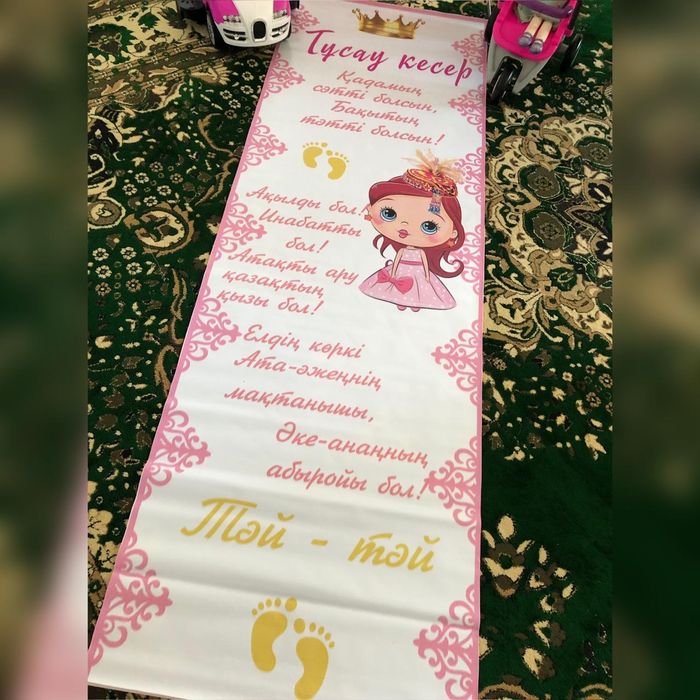 Тұсау кесер
Қадамың
сәтті болсын,
Бақытың
тәтті болсын!
Ақылды бол!
Инабатты
бол!
Атақты ару
қазақтың
қызы бол!
Елдің көркі
Ата-әжеңнің
мақтанышы,
Әке-анаңның
абыройы бол!
Тәй - тәй